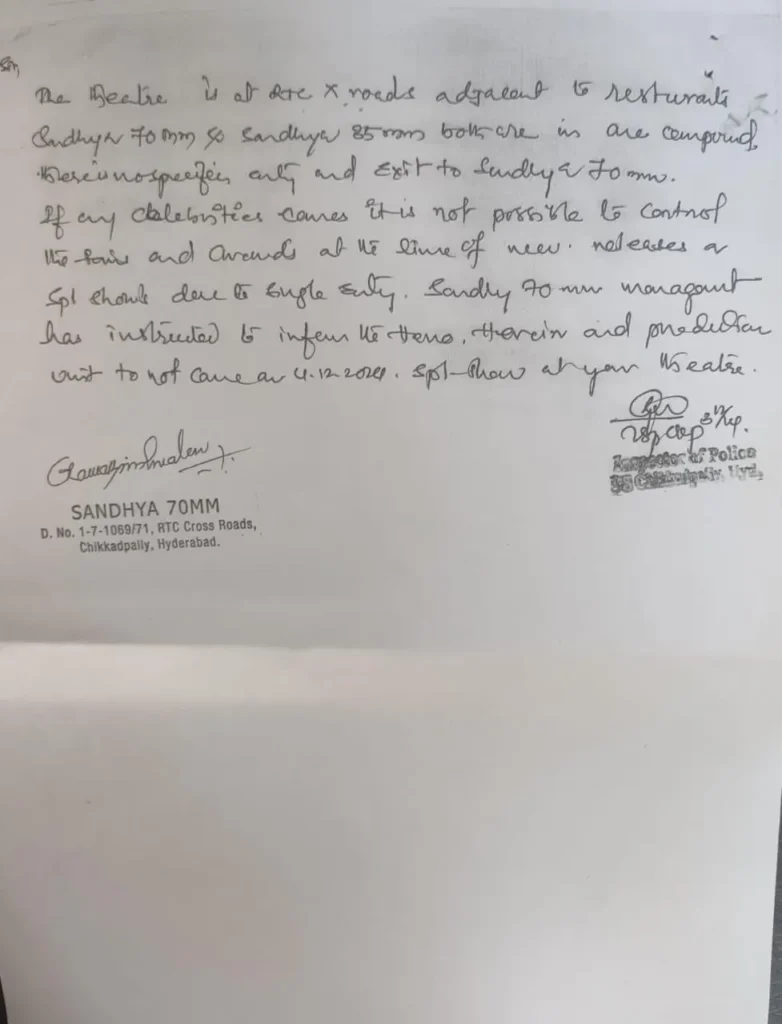 Sir,
The Theatre is at RTC X roads adjacent to resturants
Sandhya 70 mm so Sandhya 35 mm both are in one compound,
there is no specific entry and Exit to Sandhya 70 mm.
If any celebrities comes it is not possible to control
the fans and crowds at the time of new releases or
Spl shows due to single entry. Sandhy 70 mm managemt
has instructed to inform the Hero, Heroin and production
unit to not come on 4.12.2024. Spl-show at your Theatre.
3/12/24.
Inspector of Police
PS Chikkadpally, Hyd.
SANDHYA 70MM
D. No. 1-7-1069/71, RTC Cross Roads,
Chikkadpally, Hyderabad.